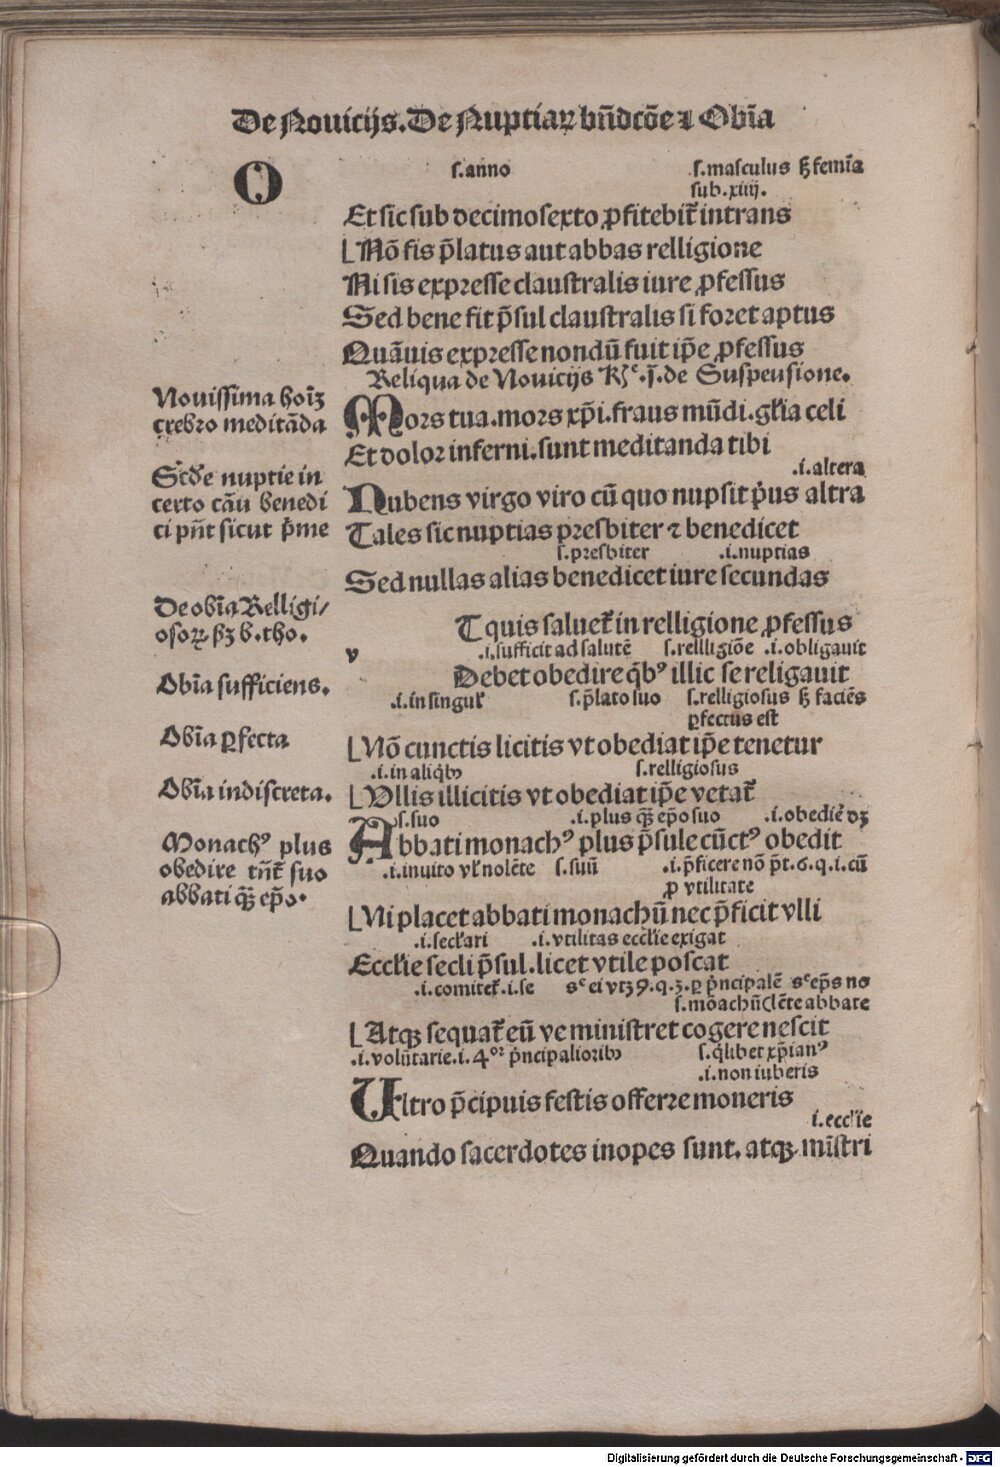 De Nouicijs. De Nuptiaꝝ bn̄dcōe ⁊ Obīa
O
s. anno s. masculus ſꝫ femīa
sub. xiiij.
Et sic sub decimosexto ꝓfitebit̄ intrans
Nō fis p̄latus aut abbas relligione
Ni sis expresse claustralis iure ꝓfessus
Sed bene fit p̄sul claustralis si foret aptus
Quāuis expresse nondū fuit ip̄e ꝓfessus
Reliqua de Nouicijs de Suspensione.
Nouissima hoīꝫ
crebro meditāda
Mors tua. mors xp̄i. fraus mūdi. gl̄ia celi
Et dolor inferni. sunt meditanda tibi
.i. altera
Scd̄e nuptie in
certo cāu benedi
ci pn̄t sicut p̄me
Nubens virgo viro cū quo nupsit p̄us altra
Tales sic nuptias presbiter ⁊ benedicet
s. presbiter .i. nuptias
Sed nullas alias benedicet iure secundas
De obīa Relligi/
osoꝝ. ſꝫ b. tho.
Obīa sufficiens.
v
T quis saluet̄ in relligione ꝓfessus
.i. sufficit ad salutē s. relligiōe .i. obligauit
Debet obedire qͥbꝰ illic se religauit
.i. in singul̄ s. p̄lato suo s. religiosus ſꝫ faciēs
ꝑfectius est
Obīa ꝑfecta
Nō cunctis licitis vt obediat ip̄e tenetur
.i. in aliqͥbꝰ s. religiosus
Obīa indiscreta.
Vllis illicitis vt obediat ip̄e vetat̄
s. suo .i. plus qȝ̄ ep̄o suo .i. obediē dꝫ
Monachꝰ plus
obedire tn̄t̄ suo
abbati qȝ̄ ep̄o.
Abbati monachꝰ plus p̄sule cūctꝰ obedit
.i. inuito vl̄ nolēte s. suū .i. p̄ficere nō p̄t. 6. q. i. cū
ꝓ vtilitate
Ni placet abbati monachū nec p̄ficit vlli
.i. secl̄ari .i. vtilitas eccl̄ie exigat
Eccl̄ie secli p̄sul. licet vtile poscat
.i. comitet̄. i. se sᶜ ei vtꝫ 9. q. 3. ꝑ p̄ncipalē sᶜ ep̄s no
s. mōachū lēte abbate
Atqȝ sequat̄ eū ve ministret cogere nescit
.i. volūtarie. i. 4ᵒʳ p̄ncipalioribꝰ s. qͥlibet xp̄ianꝰ
.i. non iuberis
Ultro p̄cipuis festis offerre moneris
i. eccl̄ie
Quando sacerdotes inopes sunt. atqȝ mīstri
Digitalisierung gefördert durch die Deutsche Forschungsgemeinschaft - DFG